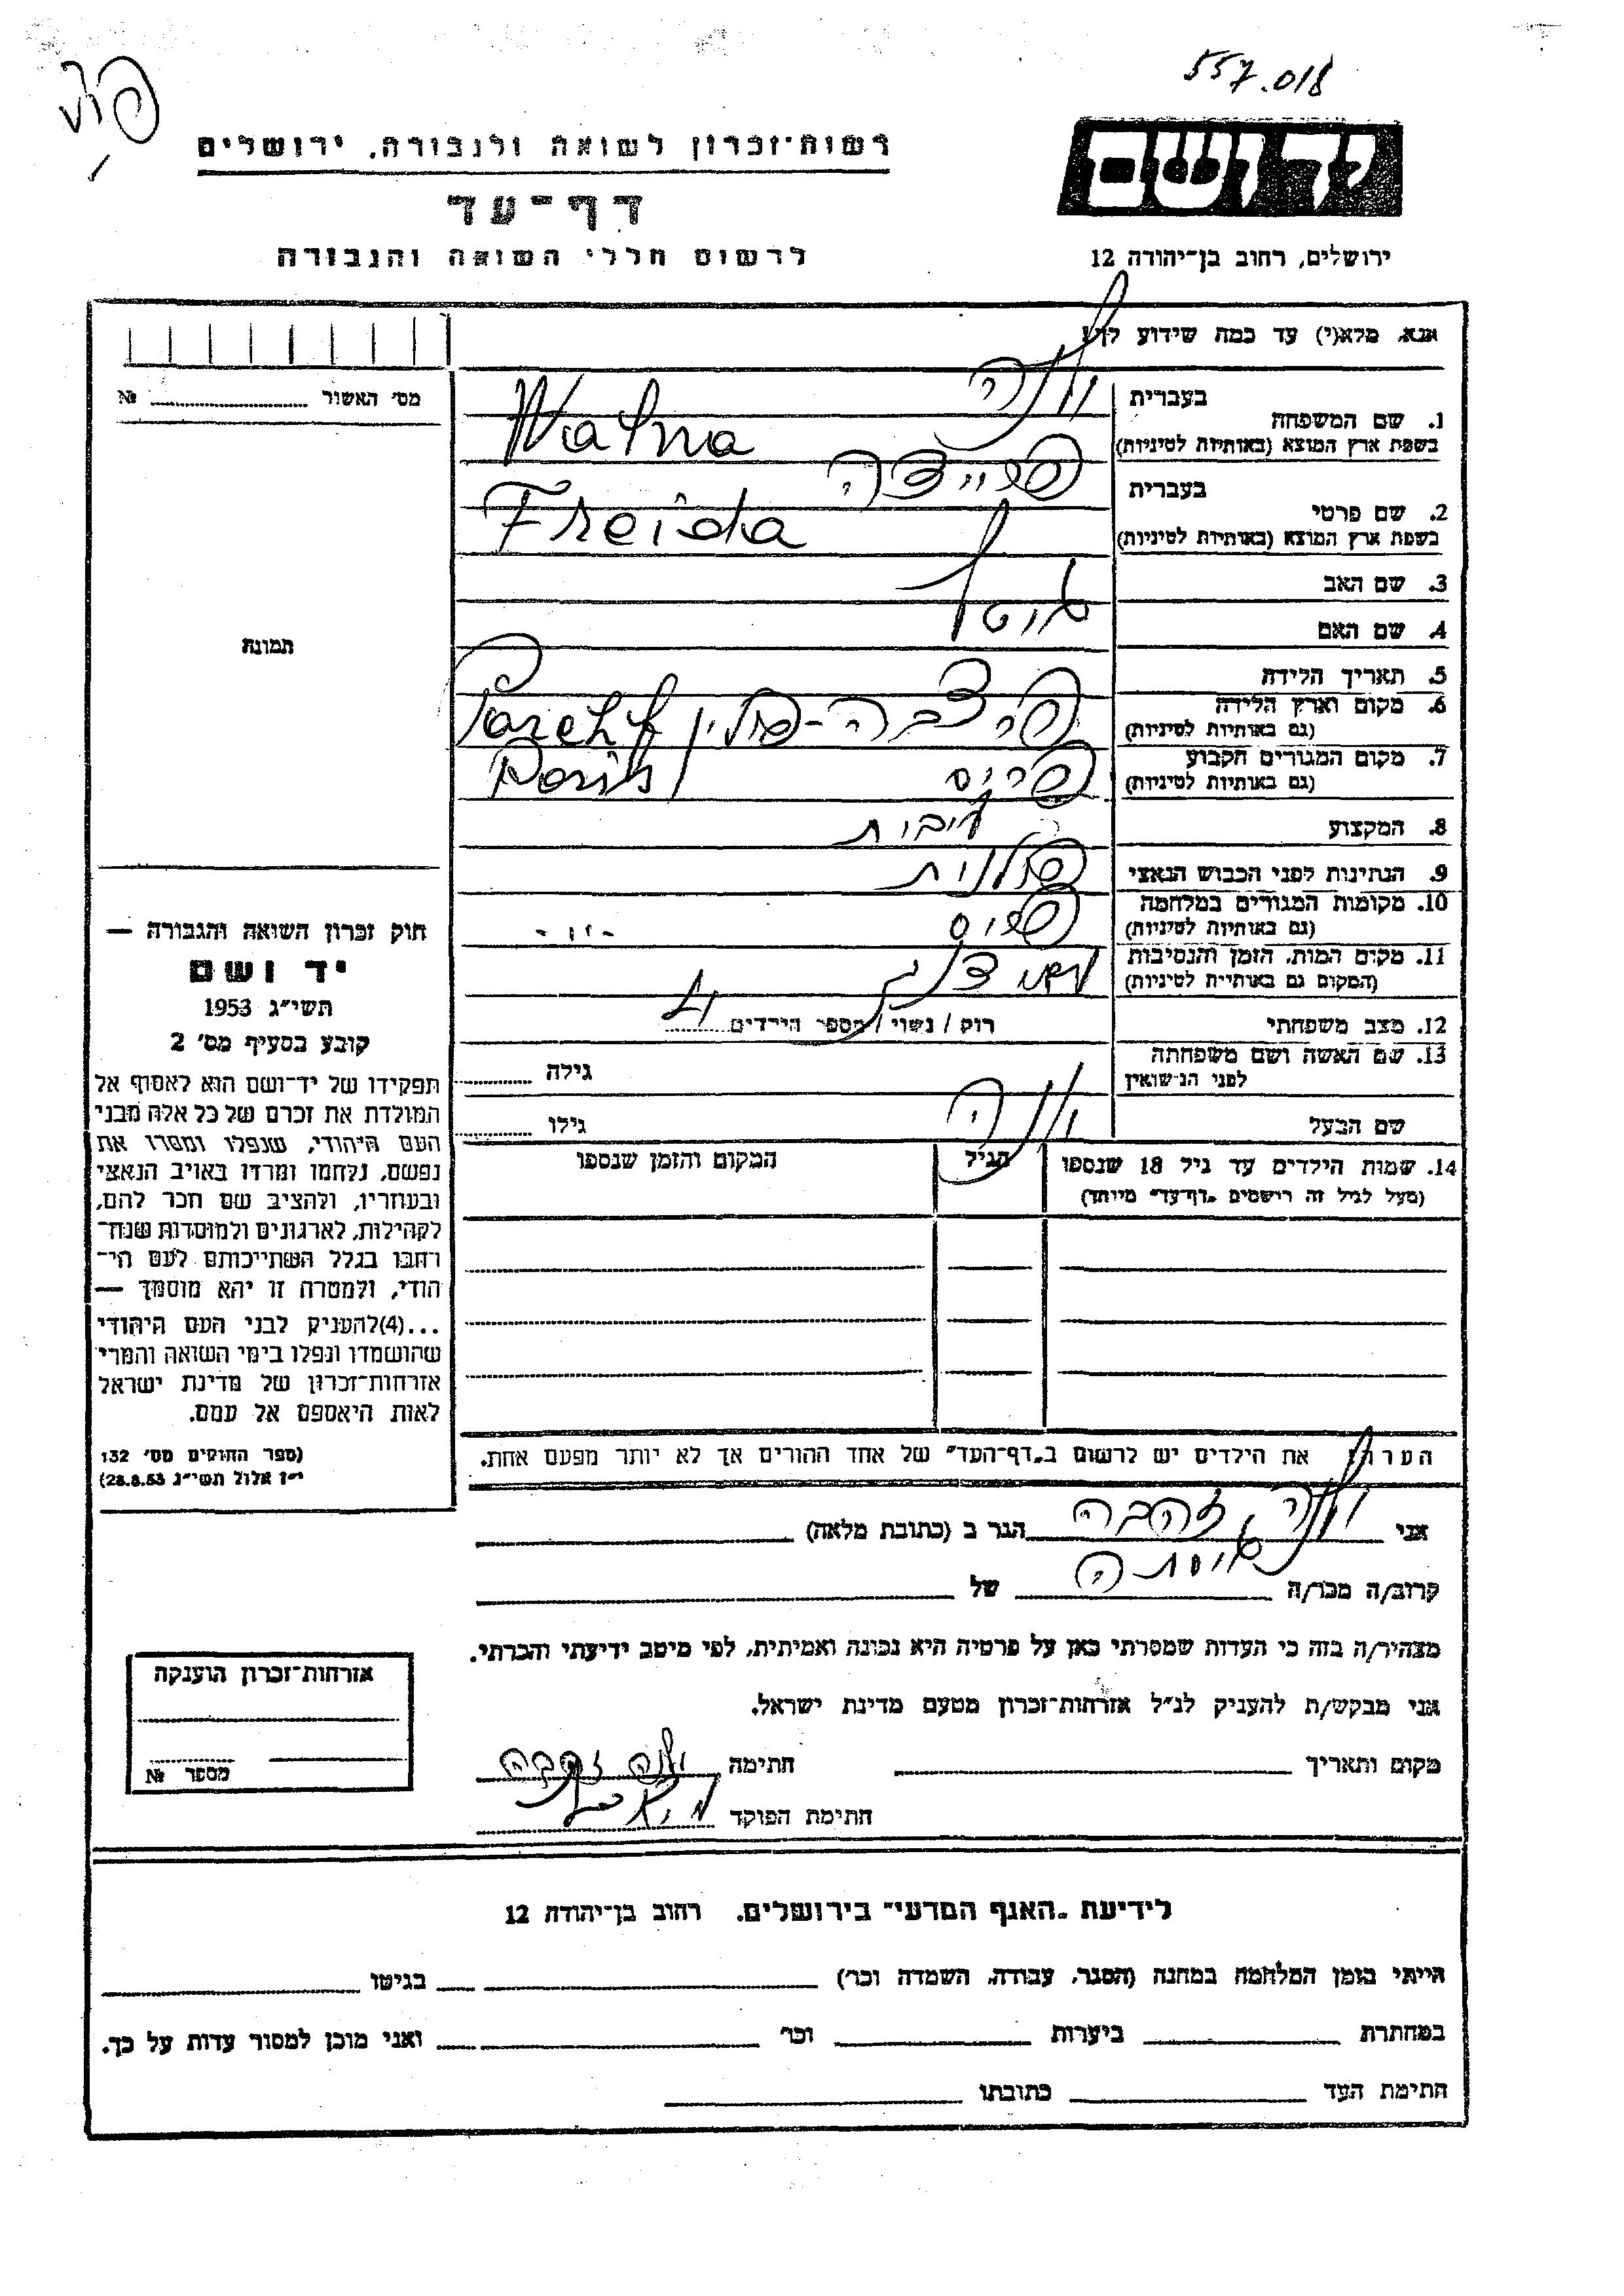 557.018
רשות־זכרון לשואה ולגבורה, ירושלים
יד ושם
דף־עד
לרשום חללי השואה והגבורה
ירושלים, רחוב בן־יהודה 12
אנא, מלא(י) עד כמה שידוע לך!
מס׳ האשור № 
תמונה
1. שם המשפחה
בעברית
בשפת ארץ המוצא (באותיות לטיניות) Walna
2. שם פרטי
בעברית פריידה
בשפת ארץ המוצא (באותיות לטיניות) Freida
3. שם האב
4. שם האם
5. תאריך הלידה
6. מקום וארץ הלידה
(גם באותיות לטיניות)
7. מקום המגורים הקבוע פריס
(גם באותיות לטיניות) Paris
8. המקצוע
9. הנתינות לפני הכבוש הנאצי פולנית
10. מקומות המגורים במלחמה פריס
(גם באותיות לטיניות) -״-
11. מקום המות, הזמן והנסיבות
(המקום גם באותיות לטיניות)
12. מצב משפחתי רוק / נשוי / מספר הילדים
13. שם האשה ושם משפחתה
לפני הנישואין גילה
שם הבעל גילו
14. שמות הילדים עד גיל 18 שנספו הגיל המקום והזמן שנספו
(מעל לגיל זה רושמים „דף־עד״ מיוחד)
הערה: את הילדים יש לרשום ב„דף־העד״ של אחד ההורים אך לא יותר מפעם אחת.
חוק זכרון השואה והגבורה —
יד ושם
תשי״ג 1953
קובע בסעיף מס׳ 2
תפקידו של יד־ושם הוא לאסוף אל
המולדת את זכרם של כל אלה מבני
העם היהודי, שנפלו ומסרו את
נפשם, נלחמו ומרדו באויב הנאצי
ובעוזריו, ולהציב שם וזכר להם,
לקהילות, לארגונים ולמוסדות שנח־
רבו בגלל השתייכותם לעם הי־
הודי, ולמטרה זו יהא מוסמך —
...(4) להעניק לבני העם היהודי
שהושמדו ונפלו בימי השואה והמרי
אזרחות־זכרון של מדינת ישראל
לאות היאספם אל עמם.
(ספר החוקים מס׳ 132
י״ז אלול תשי״ג 28.8.53)
אני זהבה הגר ב (כתובת מלאה)
קרוב/ה מכר/ה של
מצהיר/ה בזה כי העדות שמסרתי כאן על פרטיה היא נכונה ואמיתית, לפי מיטב ידיעתי והכרתי.
אני מבקש/ת להעניק לנ״ל אזרחות־זכרון מטעם מדינת ישראל.
מקום ותאריך חתימה זהבה
חתימת הפוקד
אזרחות־זכרון הוענקה
מספר №
לידיעת „האגף המדעי״ בירושלים, רחוב בן־יהודה 12
הייתי בזמן המלחמה במחנה (הסגר, עבודה, השמדה וכו׳) בגיטו
במחתרת ביערות וכו׳ ואני מוכן למסור עדות על כך.
חתימת העד כתובתו